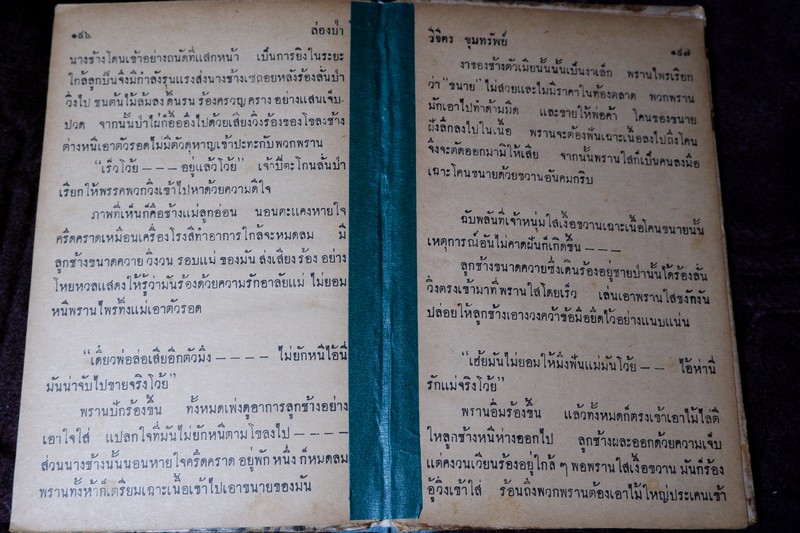 ๑๘๖
ล่องป่า
นางช้างโดนเข้าอย่างถนัดที่แสกหน้า เป็นการยิงในระยะ
ใกล้ลูกปืนจึงมีกำลังรุนแรงส่งนางช้างเซถอยหลังร้องลั่นป่า
วิ่งไป ชนต้นไม้ล้มลง ดิ้นรน ร้องครวญ คราง อย่างแสนเจ็บ
ปวด จากนั้นป่าไผ่ก็อื้ออึงไปด้วยเสียงวิ่งร้องของโขลงช้าง
ต่างหนีเอาตัวรอดไม่มีตัวดุหาญเข้าปะทะกับพวกพราน
“เร็วโว้ย – – – อยู่แล้วโว้ย” เจ้าปี๊ตะโกนลั่นป่า
เรียกให้พรรคพวกวิ่งเข้าไปหาด้วยความดีใจ
ภาพที่เห็นก็คือช้างแม่ลูกอ่อน นอนตะแคงหายใจ
ครืดคราดเหมือนเครื่องโรงสีทำอาการใกล้จะหมดลม มี
ลูกช้างขนาดควาย วิ่งวน รอบแม่ ของมัน ส่งเสียงร้อง อย่าง
โหยหวลแสดงให้รู้ว่ามันร้องด้วยความรักอาลัยแม่ ไม่ยอม
หนีพรานไพรทิ้งแม่เอาตัวรอด
“เดี๋ยวพ่อล่อเสียอีกตัวมึง – – – – ไม่ยักหนีไอ้นี่
มันน่าจับไปขายจริงโว้ย”
พรานปักร้องขึ้น ทั้งหมดเพ่งดูอาการลูกช้างอย่าง
เอาใจใส่ แปลกใจที่มันไม่ยักหนีตามโขลงไป – – – –
ส่วนนางช้างนั้นนอนหายใจครืดคราด อยู่พัก หนึ่ง ก็หมดลม
พรานทั้งห้าก็เตรียมเฉาะเนื้อเข้าไปเอาขนายของมัน
วิจิตร ขุมทรัพย์
๑๘๗
งาของช้างตัวเมียนั้นนั้นเป็นงาเล็ก พรานไพรเรียก
ว่า “ขนาย” ไม่สวยและไม่มีราคาในท้องตลาด พวกพราน
มักเอาไปทำด้ามมีด และขายให้พ่อค้า โคนของขนาย
ฝังลึกลงไปในเนื้อ พรานจะต้องฟันเฉาะเนื้อลงไปถึงโคน
จึงจะตัดออกมามิให้เสีย จากนั้นพรานใส่ก็เป็นคนลงมือ
เฉาะโคนขนายด้วยขวานอันคมกริบ
ฉับพลันที่เจ้าหนุ่มใส่เงื้อขวานเฉาะเนื้อโคนขนายนั้น
เหตุการณ์อันไม่คาดฝันก็เกิดขึ้น – – –
ลูกช้างขนาดควายซึ่งเดินร้องอยู่ชายป่านั้นได้ร้องลั่น
วิ่งตรงเข้ามาที่พรานใส่โดยเร็ว เล่นเอาพรานใส่ชงักงัน
ปล่อยให้ลูกช้างเอางวงคว้าข้อมือยึดไว้อย่างแนบแน่น
“เฮ้ยมันไม่ยอมให้มึงฟันแม่มันโว้ย – – ไอ้ห่านี่
รักแม่จริงโว้ย”
พรานอิ่มร้องขึ้น แล้วทั้งหมดก็ตรงเข้าเอาไม้ไล่ตี
ให้ลูกช้างหนีห่างออกไป ลูกช้างผละออกด้วยความเจ็บ
แต่คงวนเวียนร้องอยู่ใกล้ ๆ พอพรานใส่เงื้อขวาน มันก็ร้อง
อู้วิ่งเข้าใส่ ร้อนถึงพวกพรานต้องเอาไม้ใหญ่ประเคนเข้า